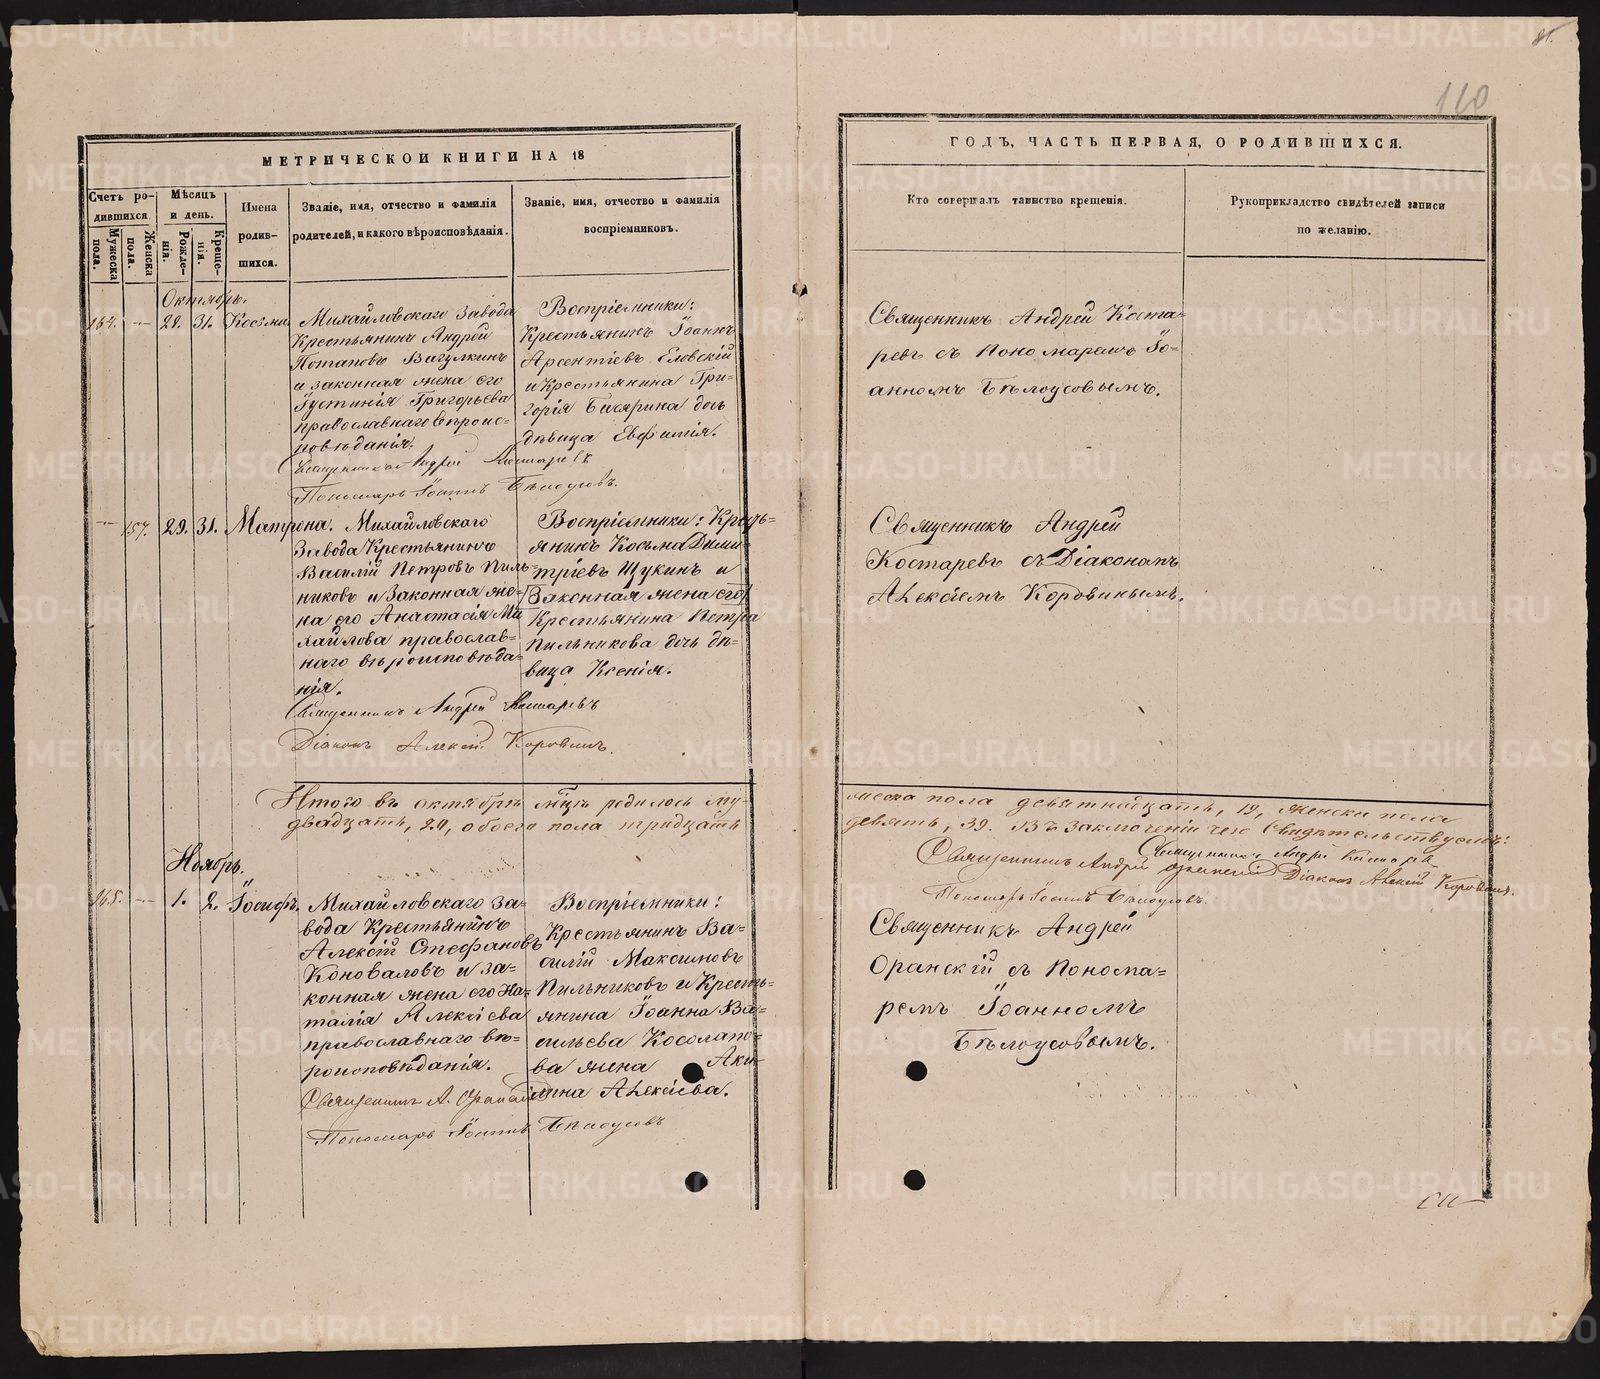 110
МЕТРИЧЕСКОЙ КНИГИ НА 18
ГОДЪ, ЧАСТЬ ПЕРВАЯ, О РОДИВШИХСЯ.
Счетъ ро-
дившихся.
Мужеска
пола.
Женска
пола.
Мѣсяцъ
и день.
Рожде-
нія.
Креще-
нія.
Имена
родив-
шихся.
Званіе, имя, отчество и фамилія
родителей, и какого вѣроисповѣданія.
Званіе, имя, отчество и фамилія
воспріемниковъ.
Кто совершалъ таинство крещенія.
Рукоприкладство свидѣтелей записи
по желанію.
Октябрь.
164. — 29. 31. Косма.
Михайловскаго Завода
Крестьянинъ Андрей
Потаповъ Вагулкинъ
и законная жена его
Іустинія Григорьева
православнаго вѣроис-
повѣданія.
Священникъ Андрей Костаревъ
Пономарь Іоаннъ Бѣлоусовъ.
Воспріемники:
Крестьянинъ Іоаннъ
Арсентіевъ Еловскій
и Крестьянина Гри-
горія дочь
дѣвица Евфимія.
Священникъ Андрей Коста-
ревъ съ Пономаремъ Іо-
анномъ Бѣлоусовымъ.
— 157. 29. 31. Матрона.
Михайловскаго
Завода Крестьянинъ
Василій Петровъ Пиль-
никовъ и Законная же-
на его Анастасія Ми
хайлова православ-
наго вѣроисповѣда-
нія.
Священникъ Андрей Костаревъ
Діаконъ Алексій Коровинъ.
Воспріемники: Кресть-
янинъ Косьма Дими-
тріевъ Щукинъ и
Законная жена его
Крестьянина Петра
Пильникова дочь дѣ-
вица Ксенія.
Священникъ Андрей
Костаревъ съ Діакономъ
Алексіемъ Коровинымъ.
Итого въ октябрѣ мцѣ родилось му-
жеска пола девятнадцать, 19, женска пола
двадцать, 20, обоего пола тридцать
девять, 39. Въ заключеніи чего свидѣтельствуемъ:
Священникъ Андрей Костаревъ
Священникъ Андрей Оранскій Діаконъ Алексій Коровинъ.
Пономарь Іоаннъ Бѣлоусовъ.
Ноябрь.
165. — 1. 2. Іосифъ.
Михайловскаго За-
вода Крестьянинъ
Алексій Стефановъ
Коноваловъ и за-
конная жена его На-
талія Алексіева
православнаго вѣ-
роисповѣданія.
Священникъ А. Оранскій
Пономарь Іоаннъ Бѣлоусовъ
Воспріемники:
Крестьянинъ Ва-
силій Максимовъ
Пильниковъ и Кресть-
янина Іоанна Ва-
сильева Косолапо-
ва жена Аки-
лина Алексіева.
Священникъ Андрей
Оранскій съ Понома-
ремъ Іоанномъ
Бѣлоусовымъ.
METRIKI.GASO-URAL.RU